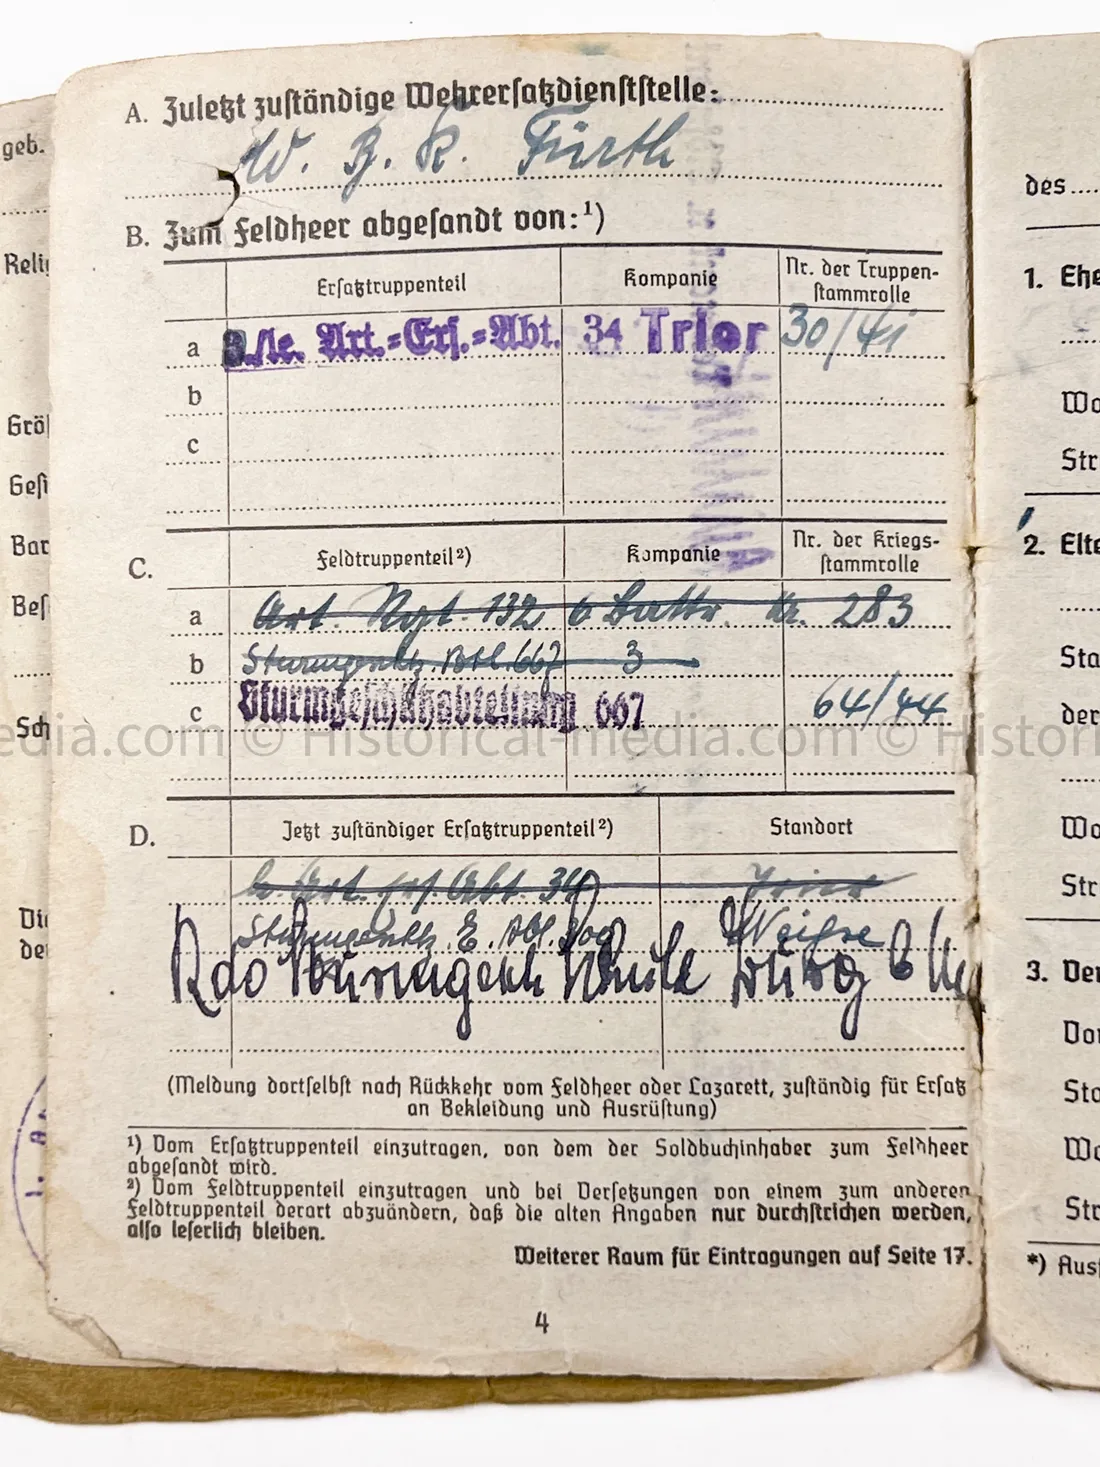 A. Zuletzt zuständige Wehrersatzdienststelle:
W. B. K. Fürth
B. Zum Feldheer abgesandt von:¹)
Ersatztruppenteil Kompanie Nr. der Truppen-
stammrolle
a le. Art.=Ers.=Abt. 34 Trier 30/41
b
c
C. Feldtruppenteil²) Kompanie Nr. der Kriegs-
stammrolle
a Art. Rgt. 132 6 Battr. Nr. 283
b Sturmgeschtz. Abt. 667 3
c Sturmgeschützabteilung 667 64/44
D. Jetzt zuständiger Ersatztruppenteil²) Standort
le. Art. Ers. Abt. 34 Trier
Sturmgeschtz. E. Abt. Neisse
Kdo Sturmgesch Schule Burg b
(Meldung dortselbst nach Rückkehr vom Feldheer oder Lazarett, zuständig für Ersatz
an Bekleidung und Ausrüstung)
¹) Vom Ersatztruppenteil einzutragen, von dem der Soldbuchinhaber zum Feldheer
abgesandt wird.
²) Vom Feldtruppenteil einzutragen und bei Versetzungen von einem zum anderen
Feldtruppenteil derart abzuändern, daß die alten Angaben nur durchstrichen werden,
also leserlich bleiben.
Weiterer Raum für Eintragungen auf Seite 17.
4
geb.
des
1. Ehe
Wo
Str
2. Elte
Sta
der
Wo
Str
3. Ver
Vor
Sta
Wo
Str
*) Ausf
edia.com © Historical-media.com © Histor